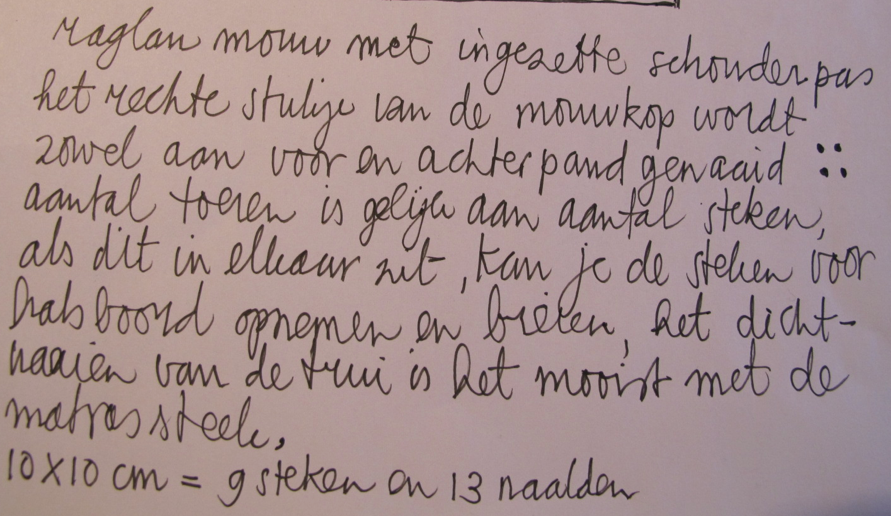 raglan mouw met ingezette schouderpas
het rechte stukje van de mouwkop wordt
zowel aan voor en achterpand genaaid ::
aantal toeren is gelijk aan aantal steken,
als dit in elkaar zit, kan je de steken voor
halsboord opnemen en breien, het dicht-
naaien van de trui is het mooist met de
matrassteek,
10x10 cm = 9 steken en 13 naalden